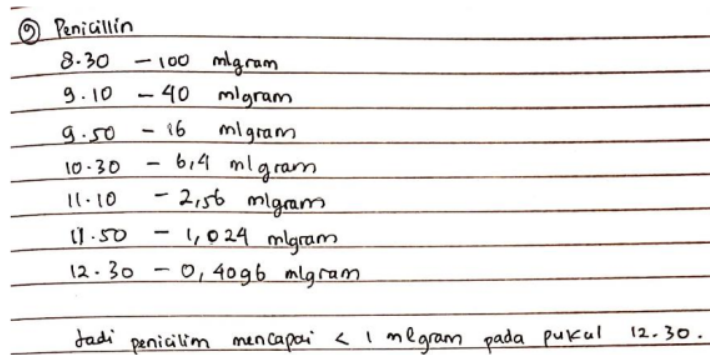 ⑨ Penicillin
8.30 - 100 mlgram
9.10 - 40 mlgram
9.50 - 16 mlgram
10.30 - 6,4 mlgram
11.10 - 2,56 mlgram
11.50 - 1,024 mlgram
12.30 - 0,4096 mlgram
Jadi penicilim mencapai < 1 mlgram pada pukul 12.30.